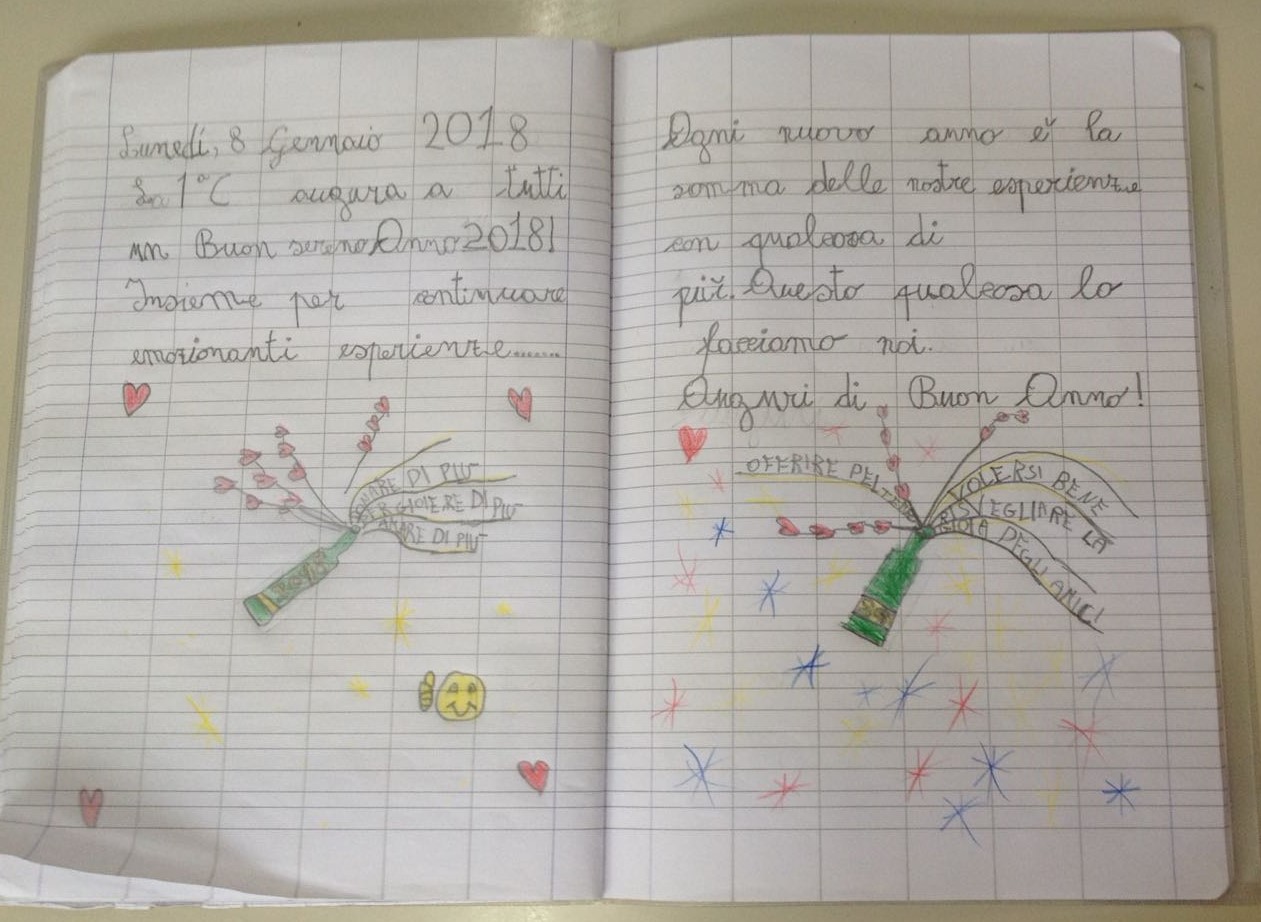 Lunedì, 8 Gennaio 2018
La 1°C augura a tutti
un Buon sereno Anno 2018!
Insieme per continuare
emozionanti esperienze.......
DONARE DI PIÙ
PER GIOIERE DI PIÙ
AMARE DI PIÙ
Ogni nuovo anno è la
somma delle nostre esperienze
con qualcosa di
più. Questo qualcosa lo
facciamo noi.
Auguri di Buon Anno!
OFFRIRE
VOLERSI BENE
RISVEGLIARE LA
GIOIA DEGLI AMICI